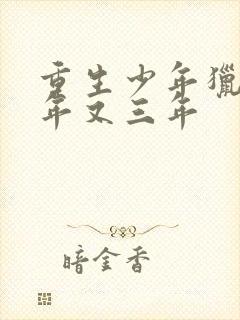 重生少年猎
年又三年
暗金香